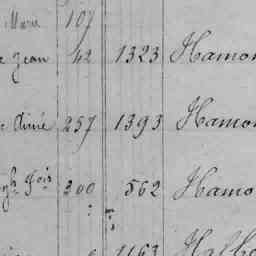 Marie 107
Jean 42 1323 Hamon
Aimé 257 1393 Hamon
gh Fois 300 562 Hamo
1163 Halbo